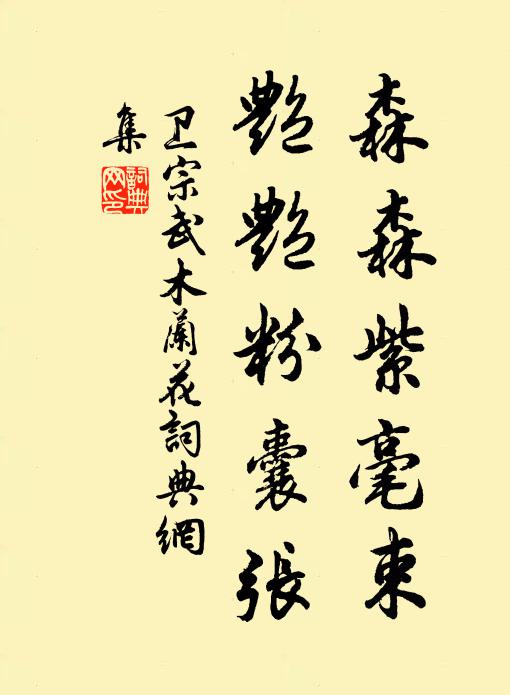 森森紫毫束
艷艷粉囊張
卫宗武木蘭花詞典網
集
詞典
网印